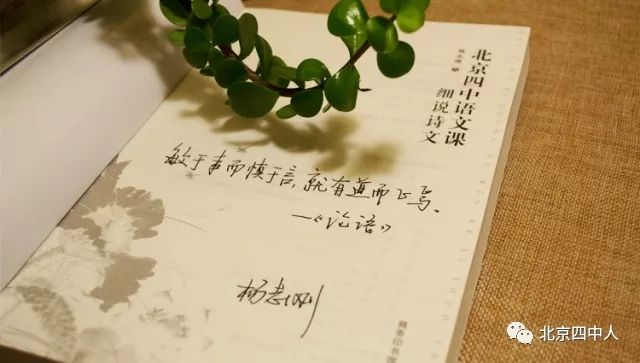 北京四中语文课
细说诗文
敏于事而慎于言,就有道而正焉。
——《论语》
杨志刚
商务印书馆
北京四中人